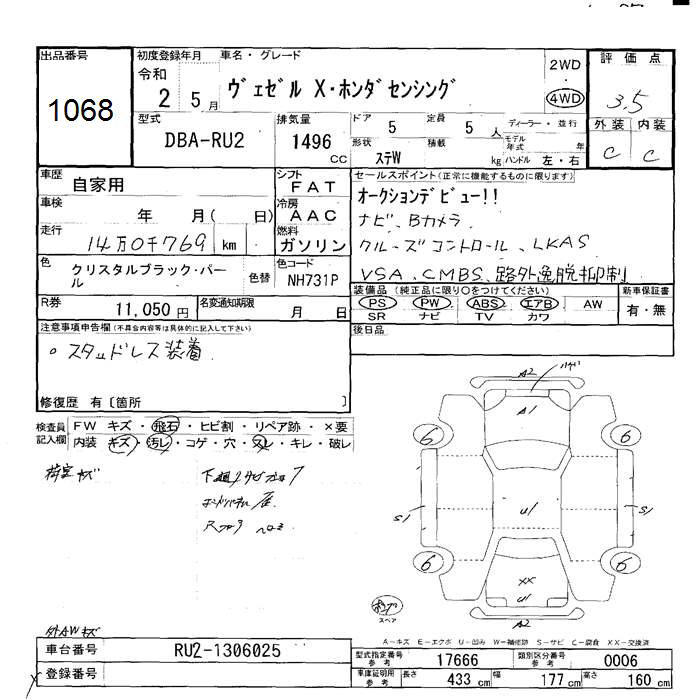 出品番号
1068
初度登録年月
令和
2 5月
車名・グレード
ヴェゼル X・ホンダセンシング
2WD
4WD
評価点
3.5
外装 内装
C C
型式
DBA-RU2
排気量
1496
CC
ドア 5
定員 5 人
形状 ステW
積載 kg
ディーラー・並行
モデル年式 年
ハンドル 左・右
車歴 自家用
車検 年 月( 日)
走行 14万0千769 km
シフト FAT
冷房 AAC
燃料 ガソリン
色 クリスタルブラック・パール
色替
色コード NH731P
R券 11,050 円
名変通知期限 月 日
セールスポイント(正常に機能するものに限ります)
オークションデビュー!!
ナビ、Bカメラ
クルーズコントロール、LKAS
VSA、CMBS、路外逸脱抑制
装備品 (純正品に限り○をつけてください)
PS PW ABS エアB AW
SR ナビ TV カワ
新車保証書
有・無
後日品
注意事項申告欄(不具合内容等は具体的に記入して下さい)
○スタッドレス装着
修復歴 有〔箇所 〕
検査員記入欄
FW キズ・飛石・ヒビ割・リペア跡・×要
内装 キズ・汚レ・コゲ・穴・スレ・キレ・破レ
荷室キズ
A2
A1
6 6
S1 U1 S1
6 6
XX
U1
A2
スペア
外AWキズ
A-キズ E-エクボ U-凹み W-補修跡 S-サビ C-腐食 XX-交換済
車台番号 RU2-1306025
登録番号
型式指定番号 参考 17666
類別区分番号 参考 0006
車庫証明用 参考 長さ 433 cm 幅 177 cm 高さ 160 cm